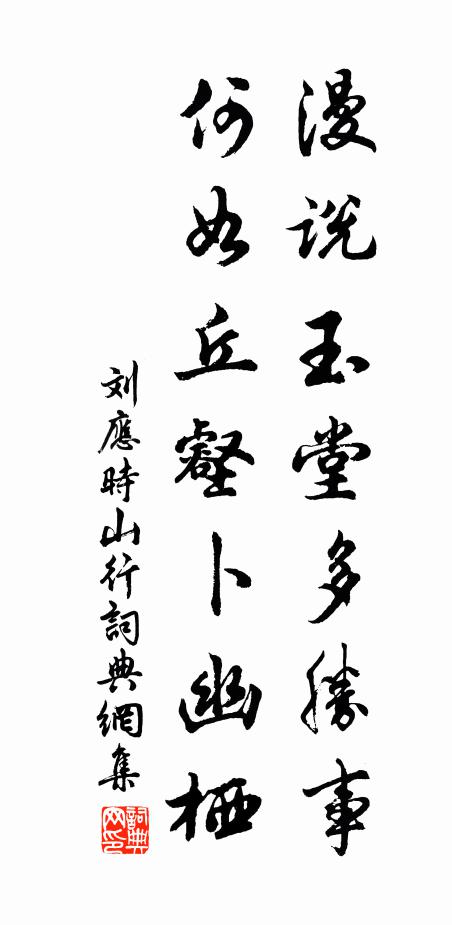 漫说玉堂多勝事
何如丘壑卜幽栖
刘應時山行詞典網集
詞典网印